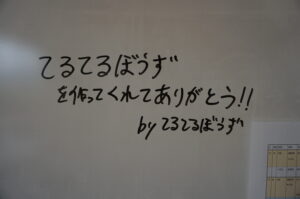 てるてるぼうず
を作ってくれてありがとう!!
by てるてるぼうず